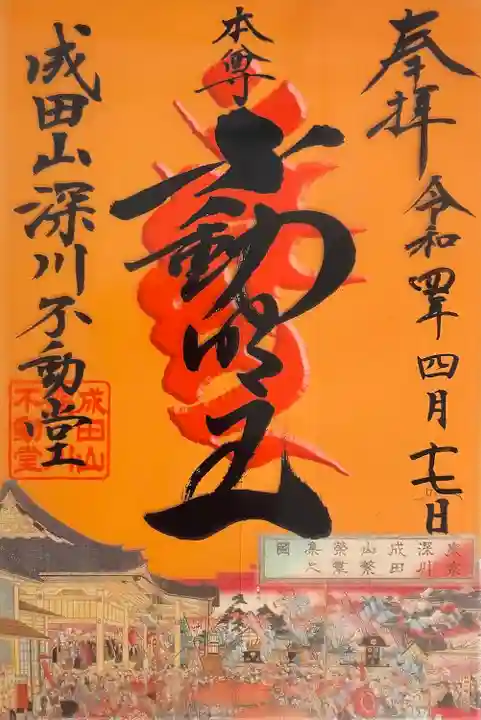 奉拝
令和四年四月十七日
本尊
不動明王
成田山深川不動堂
成田山
不動堂
東京
深川
成田
山繁
栄羣
集之
図